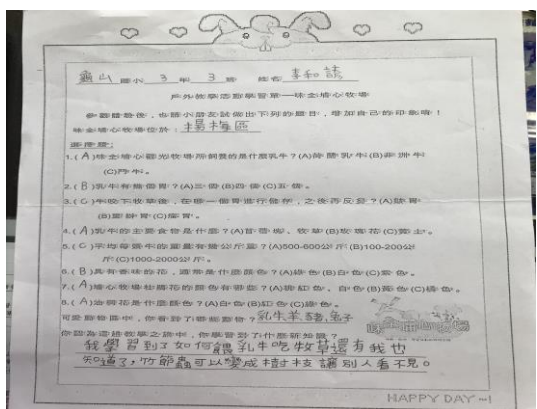 龜山國小 3 年 3 班 姓名 李和諺
戶外教學活動學習單—味全埔心牧場
參觀體驗後，也請小朋友試做出下列的題目，增加自己的印象唷！
味全埔心牧場位於：楊梅區
選擇題：
1.(A)味全埔心觀光牧場所飼養的是什麼乳牛？(A)荷蘭乳牛(B)非洲牛
(C)丹牛。
2.(B)乳牛有幾個胃？(A)三個(B)四個(C)五個。
3.(C)牛吃下牧草後，在哪一個胃進行儲存，之後再反芻？(A)皺胃
(B)重瓣胃(C)瘤胃。
4.(A)乳牛的主要食物是什麼？(A)苜蓿塊、牧草(B)玫瑰花(C)粟土。
5.(C)平均每頭牛的重量有幾公斤重？(A)500-600公斤(B)100-200公
斤(C)1000-2000公斤。
6.(B)具有香味的花，通常是什麼顏色？(A)綠色(B)白色(C)紫色。
7.(A)埔心牧場桂花的顏色有哪些？(A)緋紅色、白色(B)紫色(C)綠色。
8.(A)油桐花是什麼顏色？(A)白色(B)紅色(C)綠色。
可愛動物區中，你看到了哪些動物？乳牛羊豬,兔子
你認為這趟教學之旅中，你學習到了什麼新知識？
我學習到了如何餵乳牛吃牧草還有我也
知道了，竹節蟲可以變成樹枝讓別人看不見。
HAPPY DAY ~!